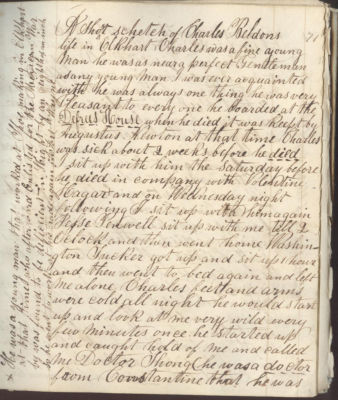 71
A Short schetch of Charles Beldons
life in Elkhart Charles was a fine a young
man he was as near a perfect Gentlemen
as any young man I was ever acquainted
with he was always one thing he was very
Pleasant to every one he boarded at the
House when he died it was kept by
Augustus Newton at that time Charles
was sick about 2 weeks before he died
I sit up with him the Saturday before
he died in company with Volentine
Hagar and on Wednesday night
following I sit up with him again
Jesse Penwell sit up with me till 2
Oclock and then went home Washin-
gton Tucker got up and sit up 1 hour
and then went to bed again and left
me alone, Charles feet and arms
were cold all night he would start
up and look at me very wild every
few minutes once he started up
and caught hold of me and called
me Doctor Thong (he was a doctor
from Constantine that he was
he was a young man that worked at Shoe making in Elkhart
it that time
by was found to be